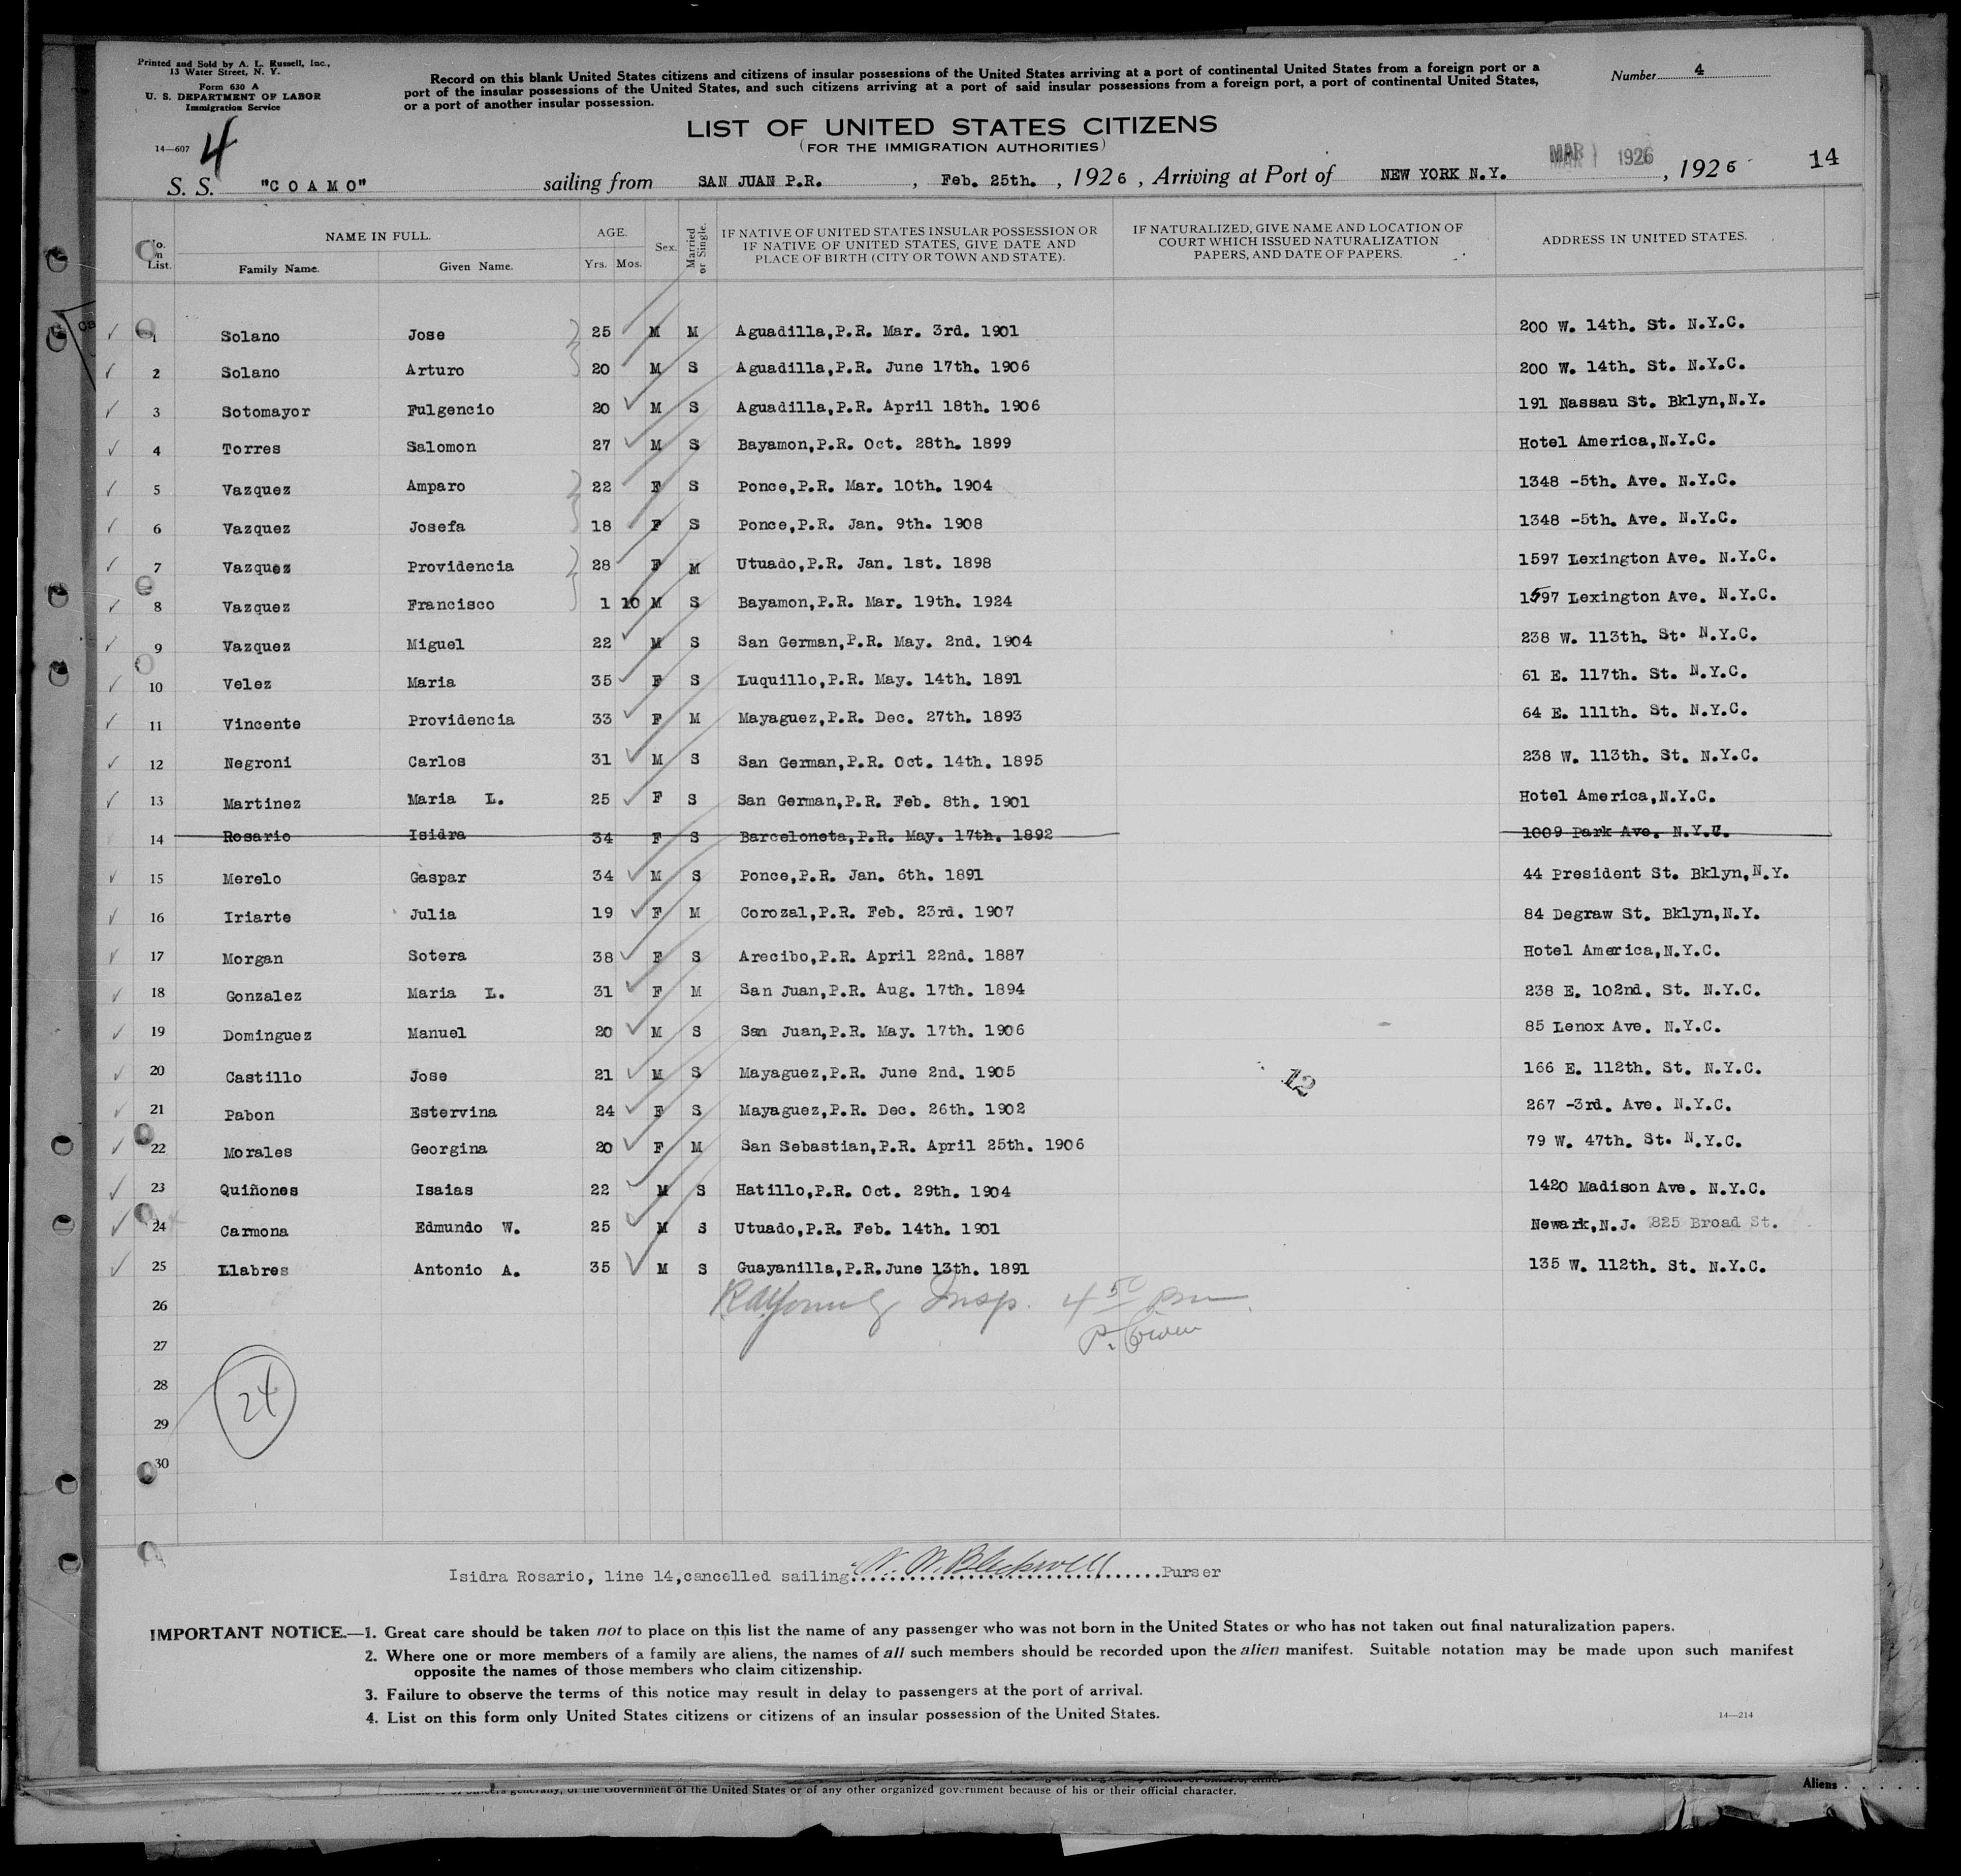 Printed and Sold by A. L. Russell, Inc.,
13 Water Street, N. Y.
Form 630 A
U. S. DEPARTMENT OF LABOR
Immigration Service
14—607
4
Record on this blank United States citizens and citizens of insular possessions of the United States arriving at a port of continental United States from a foreign port or a
port of the insular possessions of the United States, and such citizens arriving at a port of said insular possessions from a foreign port, a port of continental United States,
or a port of another insular possession.
Number 4
LIST OF UNITED STATES CITIZENS
(FOR THE IMMIGRATION AUTHORITIES)
MAR 1 1926
14
S. S. "COAMO" sailing from SAN JUAN P.R. , Feb. 25th. , 1926 , Arriving at Port of NEW YORK N.Y. , 1926
No. in List. NAME IN FULL. Family Name. Given Name. AGE. Yrs. Mos. Sex. Married or Single. IF NATIVE OF UNITED STATES INSULAR POSSESSION OR IF NATIVE OF UNITED STATES, GIVE DATE AND PLACE OF BIRTH (CITY OR TOWN AND STATE). IF NATURALIZED, GIVE NAME AND LOCATION OF COURT WHICH ISSUED NATURALIZATION PAPERS, AND DATE OF PAPERS. ADDRESS IN UNITED STATES.
1 Solano Jose 25 M M Aguadilla,P.R. Mar. 3rd. 1901 200 W. 14th. St. N.Y.C.
2 Solano Arturo 20 M S Aguadilla,P.R. June 17th. 1906 200 W. 14th. St. N.Y.C.
3 Sotomayor Fulgencio 20 M S Aguadilla,P.R. April 18th. 1906 191 Nassau St. Bklyn,N.Y.
4 Torres Salomon 27 M S Bayamon,P.R. Oct. 28th. 1899 Hotel America,N.Y.C.
5 Vazquez Amparo 22 F S Ponce,P.R. Mar. 10th. 1904 1348 -5th. Ave. N.Y.C.
6 Vazquez Josefa 18 F S Ponce,P.R. Jan. 9th. 1908 1348 -5th. Ave. N.Y.C.
7 Vazquez Providencia 28 F M Utuado,P.R. Jan. 1st. 1898 1597 Lexington Ave. N.Y.C.
8 Vazquez Francisco 1 10 M S Bayamon,P.R. Mar. 19th. 1924 1597 Lexington Ave. N.Y.C.
9 Vazquez Miguel 22 M S San German,P.R. May. 2nd. 1904 238 W. 113th. St. N.Y.C.
10 Velez Maria 35 F S Luquillo,P.R. May. 14th. 1891 61 E. 117th. St. N.Y.C.
11 Vincente Providencia 33 F M Mayaguez,P.R. Dec. 27th. 1893 64 E. 111th. St. N.Y.C.
12 Negroni Carlos 31 M S San German,P.R. Oct. 14th. 1895 238 W. 113th. St. N.Y.C.
13 Martinez Maria L. 25 F S San German,P.R. Feb. 8th. 1901 Hotel America,N.Y.C.
14 Rosario Isidra 34 F S Barceloneta,P.R. May. 17th. 1892 1009 Park Ave. N.Y.C.
15 Merelo Gaspar 34 M S Ponce,P.R. Jan. 6th. 1891 44 President St. Bklyn,N.Y.
16 Iriarte Julia 19 F M Corozal,P.R. Feb. 23rd. 1907 84 Degraw St. Bklyn,N.Y.
17 Morgan Sotera 38 F S Arecibo,P.R. April 22nd. 1887 Hotel America,N.Y.C.
18 Gonzalez Maria L. 31 F M San Juan,P.R. Aug. 17th. 1894 238 E. 102nd. St. N.Y.C.
19 Dominguez Manuel 20 M S San Juan,P.R. May. 17th. 1906 85 Lenox Ave. N.Y.C.
20 Castillo Jose 21 M S Mayaguez,P.R. June 2nd. 1905 166 E. 112th. St. N.Y.C.
12
21 Pabon Estervina 24 F S Mayaguez,P.R. Dec. 26th. 1902 267 -3rd. Ave. N.Y.C.
22 Morales Georgina 20 F M San Sebastian,P.R. April 25th. 1906 79 W. 47th. St. N.Y.C.
23 Quiñones Isaias 22 M S Hatillo,P.R. Oct. 29th. 1904 1420 Madison Ave. N.Y.C.
24 Carmona Edmundo W. 25 M S Utuado,P.R. Feb. 14th. 1901 Newark,N.J. 825 Broad St.
25 Llabres Antonio A. 35 M S Guayanilla,P.R.June 13th. 1891 135 W. 112th. St. N.Y.C.
26 Insp. 4 50 pm
27
28
24
29
30
Isidra Rosario, line 14,cancelled sailing W. Blackwell Purser
IMPORTANT NOTICE.—1. Great care should be taken not to place on this list the name of any passenger who was not born in the United States or who has not taken out final naturalization papers.
2. Where one or more members of a family are aliens, the names of all such members should be recorded upon the alien manifest. Suitable notation may be made upon such manifest
opposite the names of those members who claim citizenship.
3. Failure to observe the terms of this notice may result in delay to passengers at the port of arrival.
4. List on this form only United States citizens or citizens of an insular possession of the United States.
14—214
of the Government of the United States or of any other organized government because of his or their official character.
Aliens